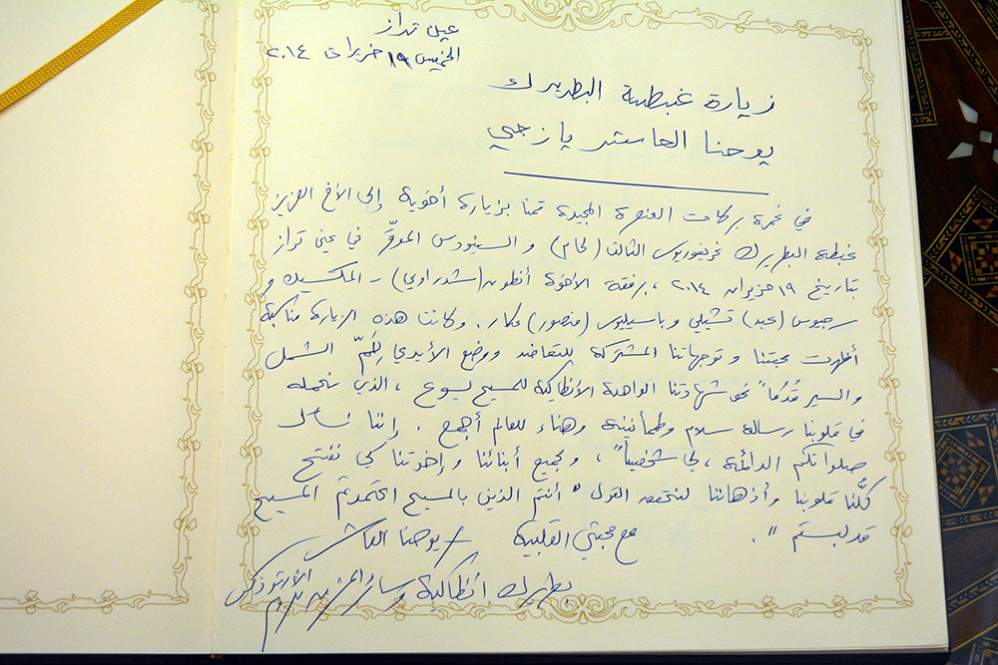 عين تراز
الخميس ١٩ حزيران ٢٠١٤
زيارة غبطة البطريرك
يوحنا العاشر يازجي
في غمرة بركات العنصرة المجيدة قمنا بزيارة أخوية إلى الأخ العزيز
غبطة البطريرك غريغوريوس الثالث (لحام) و السينودس الموقّر في عين تراز
بتاريخ ١٩ حزيران ٢٠١٤ ، برفقة الأخوة أنطونيو (شدراوي) - المكسيك و
سرجيوس (عبد) تشيلي و باسيليوس (منصور) عكار. وكانت هذه الزيارة مناسبة
أظهرت محبتنا و توجهاتنا المشتركة للتعاضد ووضع الأيدي لِلَمّ الشمل
والسير قُدُماً نحو شهادتنا الواحدة الأنطاكية للمسيح يسوع ، الذي نحمله
في قلوبنا رسالة سلام وطمأنينة وهناء للعالم أجمع . إننا نسأل
صلواتكم الدائمة ، لي شخصياً ، و لجميع أبنائنا و إخوتنا كي نفتح
كلّنا قلوبنا وأذهاننا لنحقق القول " أنتم الذين بالمسيح اعتمدتم المسيح
قد لبستم " .
مع محبتي القلبية + يوحنا العاشر
بطريرك أنطاكية وسائر المشرق للروم الأرثوذكس